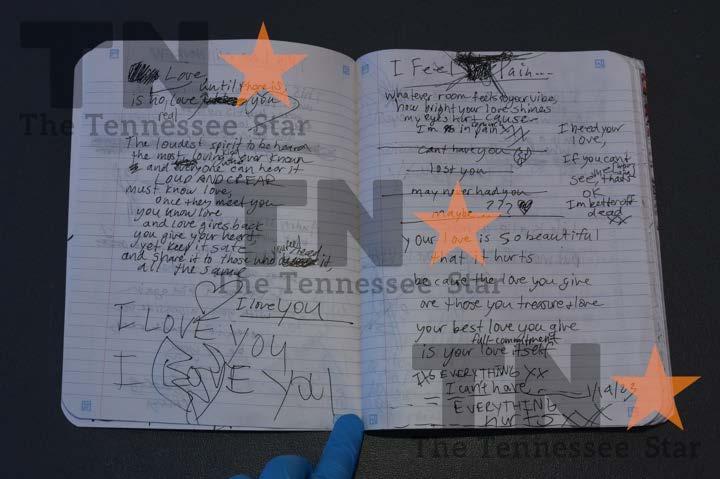 Love
until there is
is no love you
real
The loudest spirit to be heard
the most loving ever known
and everyone can hear it
LOUD AND CLEAR
must know love,
once they meet you
you know love
and love gives back
you give your heart,
yet keep it safe
and share it to those who need it,
all the same
I love you
I LOVE YOU
I LOVE YOU
I Feel Pain...
Whatever room feels to your vibe,
how bright your love shines
my eyes hurt cause
I'm in pain XX
can't have you
lost you
may never had you
maybe ???
I need your
love,
If you can't
see, that's
ok
I'm better off
dead
XX
your love is so beautiful
that it hurts
because the love you give
are those you treasure + love
your best love you give
full commitment
is your love itself
EVERYTHING XX
I can't have
EVERYTHING
hurts XX
TN
The Tennessee Star
TN
The Tennessee Star
TN
The Tennessee Star